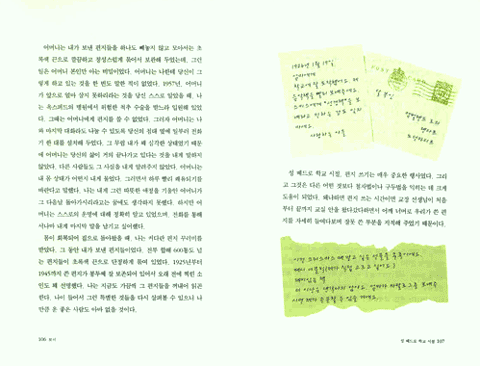 어머니는 내가 보낸 편지들을 하나도 빼놓지 않고 모아서는 초
록색 끈으로 깔끔하고 정성스럽게 묶어서 보관해 두었는데, 그런
일은 어머니 본인만 아는 비밀이었다. 어머니는 나한테 당신이 그
렇게 하고 있는 것을 한 번도 말한 적이 없었다. 1957년, 어머니
가 앞으로 얼마 살지 못하리라는 것을 당신 스스로 알았을 때, 나
는 옥스퍼드의 병원에서 위험한 척추 수술을 받느라 입원해 있었
다. 그때는 어머니에게 편지를 쓸 수 없었다. 그러자 어머니는 나
와 마지막 대화라도 나눌 수 있도록 당신의 침대 옆에 일부러 전화
기 한 대를 설치해 두었다. 그 무렵 내가 꽤 심각한 상태였기 때문
에 어머니는 당신의 삶이 거의 끝나가고 있다는 것을 내게 말하지
않았다. 다른 사람들도 그 사실을 내게 알려주지 않았다. 어머니는
내 몸 상태가 어떤지 내게 물었다. 그러면서 하루 빨리 쾌유되기를
바란다고 말했다. 나는 내게 그런 따뜻한 애정을 기울인 어머니가
그 다음날 돌아가시리라고는 꿈에도 생각하지 못했다. 하지만 어
머니는 스스로의 운명에 대해 정확히 알고 있었으며, 전화를 통해
서나마 내게 마지막 말을 남기고 싶어했다.
몸이 회복되어 집으로 돌아왔을 때, 나는 커다란 편지 꾸러미를
받았다. 그 동안 내가 보낸 편지들이었다. 전부 합해 600통도 넘
는 편지들이 초록색 끈으로 단정하게 묶여 있었다. 1925년부터
1945년까지 쓴 편지가 봉투째 잘 보존되어 있어서 오래 전에 찍힌 소
인도 꽤 선명했다. 나는 지금도 가끔씩 그 편지들을 꺼내어 읽곤
한다. 나이 들어서 그런 특별한 것들을 다시 살펴볼 수 있으니 나
만큼 운 좋은 사람도 아마 없을 것이다.
106 보이
성 베드로 학교 시절, 편지 쓰기는 매우 중요한 행사였다. 그리
고 그것은 다른 어떤 것보다 철자법이나 구두법을 익히는 데 크게
도움이 되었다. 왜냐하면 편지 쓰는 시간이면 교장 선생님이 처음
부터 끝까지 교실 안을 왔다갔다하면서 어깨 너머로 우리가 쓴 편
지를 자세히 들여다보며 잘못 쓴 부분을 지적해 주었기 때문이다.
성 베드로 학교 시절 107